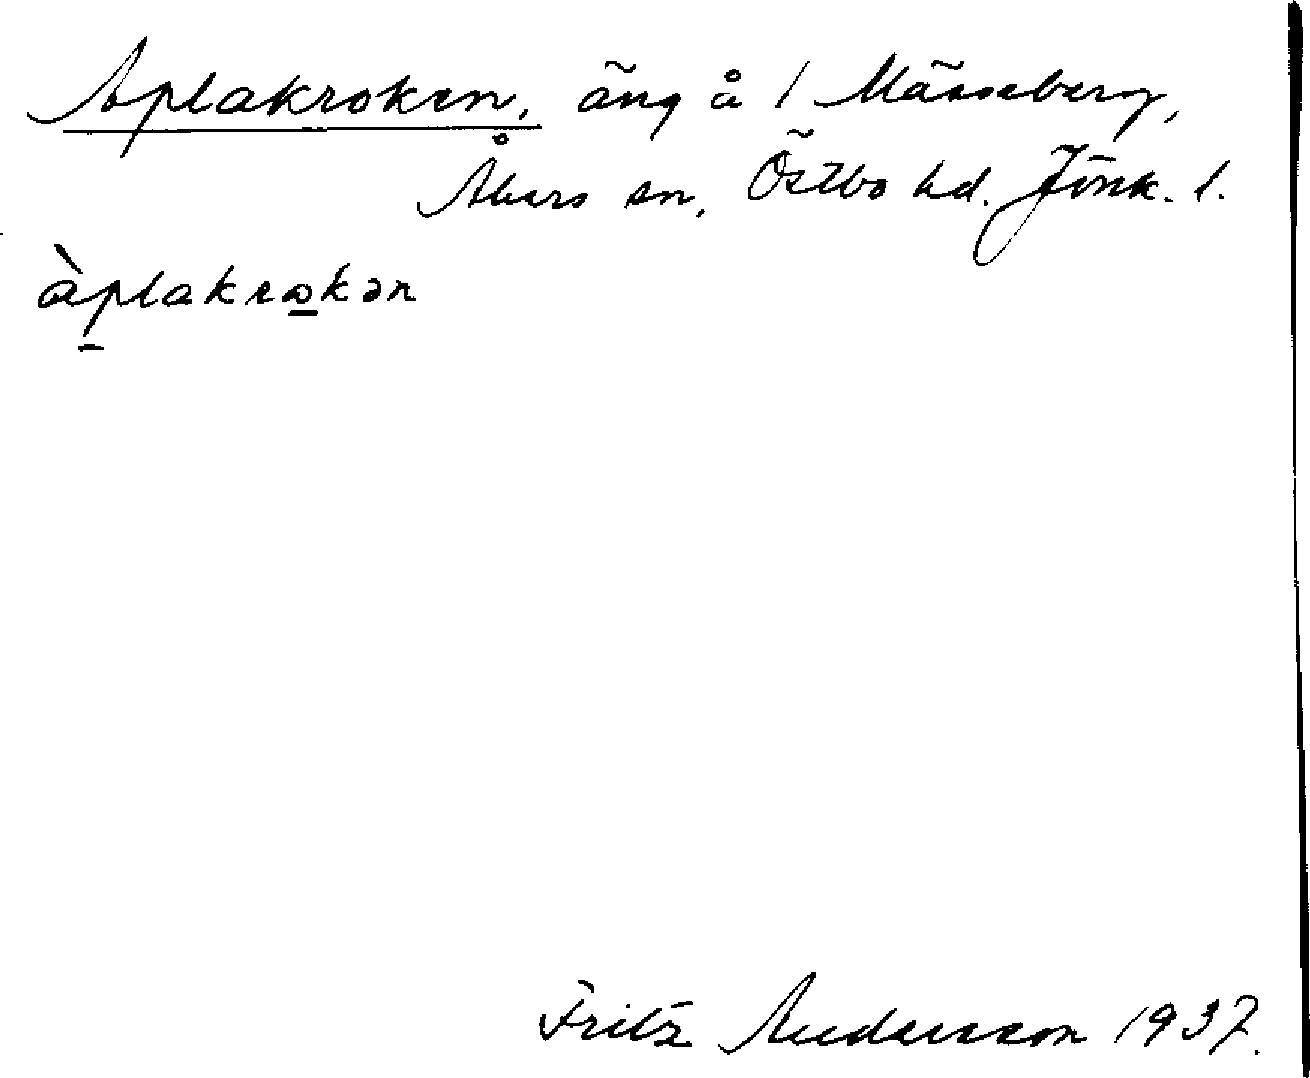 Aplakroken, äng å 1 Mässeberg,
Åkers sn, Östbo hd. Jönk. l.
àplakrokən
Fritz Andersson 1937.